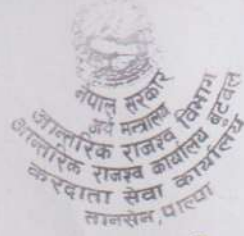 नेपाल सरकार
अर्थ मन्त्रालय
आन्तरिक राजश्व विभाग
आन्तरिक राजश्व कार्यालय बुटवल
करदाता सेवा कार्यालय
तानसेन, पाल्पा